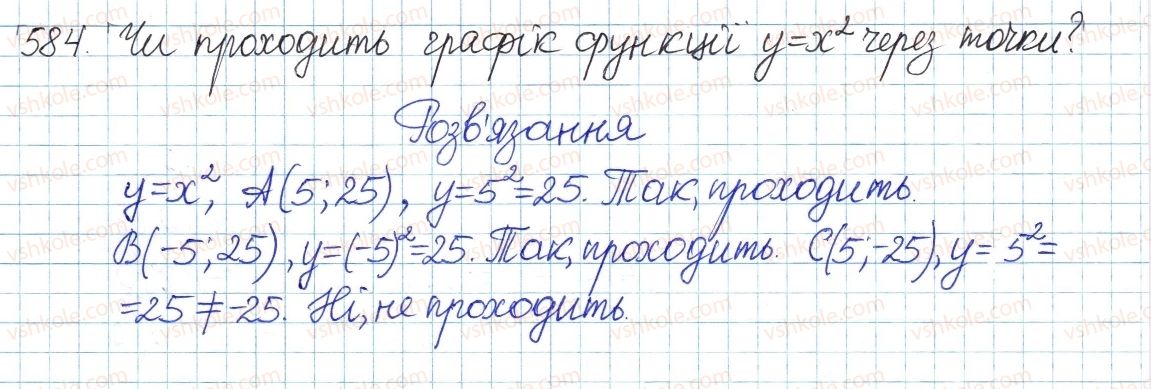 584. Чи проходить графік функції y=x² через точки?
Розв'язання
y=x², A(5;25), y=5²=25. Так, проходить.
B(-5;25), y=(-5)²=25. Так, проходить. C(5;-25), y= 5²=
=25≠-25. Ні, не проходить.